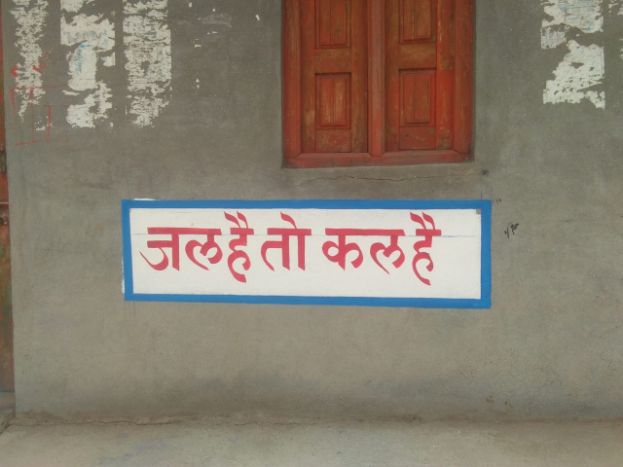 जल है तो कल है